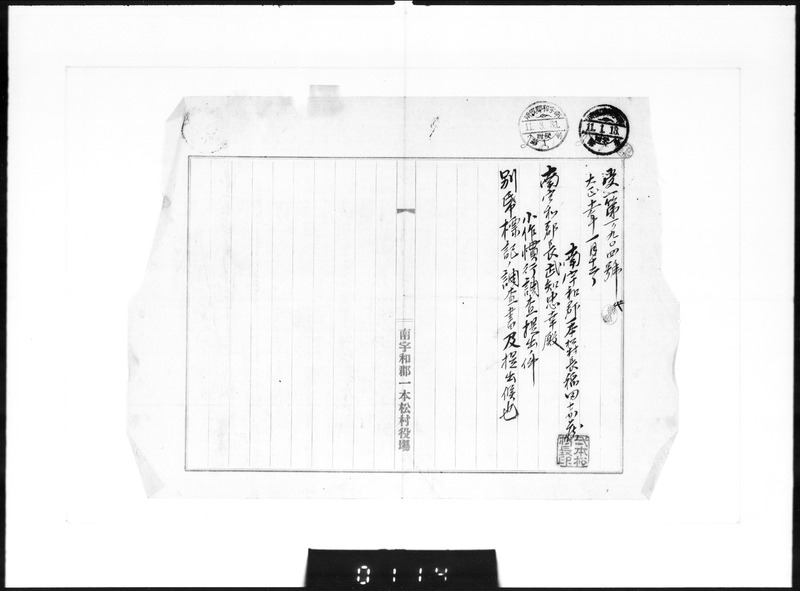 受第一一九〇四號
大正十一年一月十二日
南宇和郡一本松村長稲田十
南宇和郡長武知忠幸殿
小作慣行調査提出ノ件
別帋標記ノ調査書及提出候也
南宇和郡一本松村役場
0114